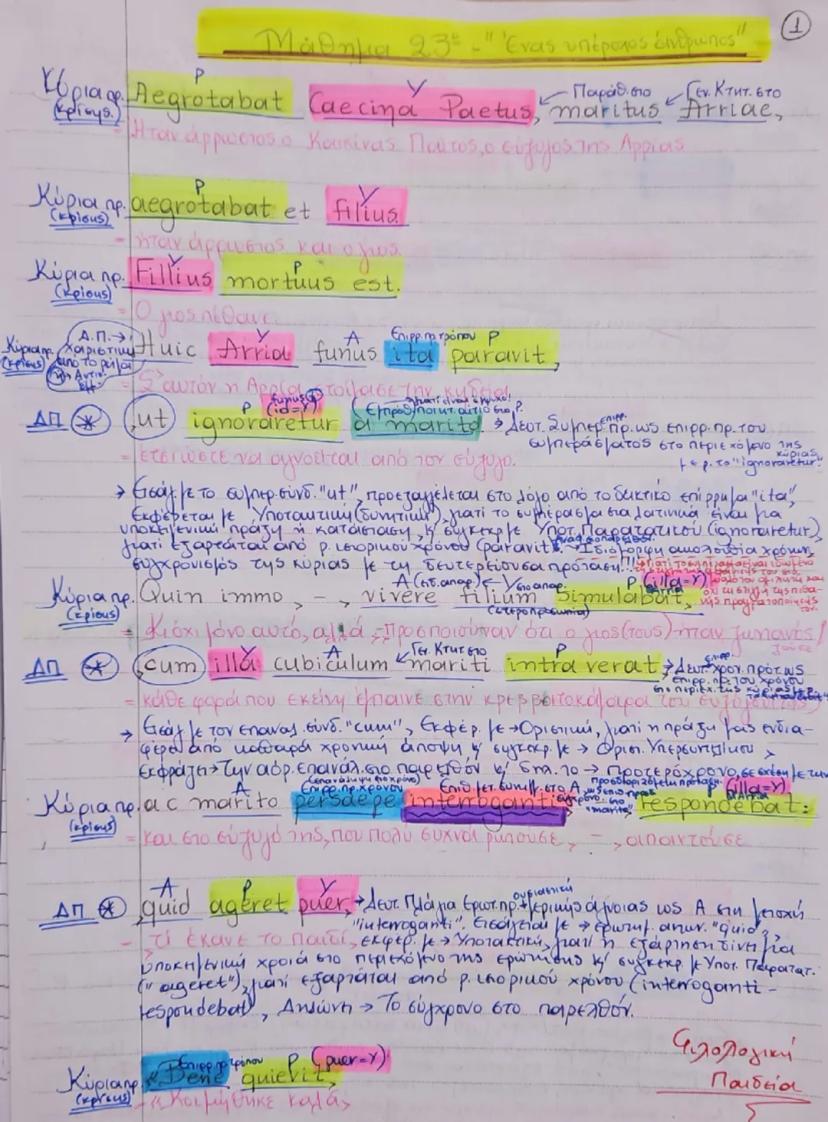 1
Μάθημα 23ο - "Ένας υπέροχος άνθρωπος"
Ρ Υ Παράθ. στο Γεν. Κτητ. στο
Κύρια πρ. Aegrotabat Caecina Paetus, maritus Arriae,
(κρίσης)
= Ήταν άρρωστος ο Καικίνας Παίτος, ο σύζυγος της Αρρίας
Ρ Υ
Κύρια πρ. aegrotabat et filius.
(κρίσης)
- ήταν άρρωστος και ο γιος.
Κύρια πρ. Fillius mortuus est.
(κρίσης) Ρ
= Ο γιος πέθανε.
Δ.Π.→ Χαριστική από το ρήμα
Υ Α Επιρρ. πρ. τρόπου Ρ
Κύρια πρ. Huic Arria funus ita paravit,
(κρίσης)
= Σ' αυτόν η Αρρία ετοίμασε την κηδεία
Ρ (id=Υ)
ΔΠ * ,ut ignoraretur a marito → Δευτ. Συμπερ. πρ. ως επιρρ. πρ. του
συμπεράσματος στο περιεχόμενο της κύριας
με ρ. το "ignoraretur".
= έτσι ώστε να αγνοείται από τον σύζυγο.
→ Εισάγ. με το συμπερ. σύνδ. "ut", προεξαγγέλεται στο λόγο από το δεικτικό επίρρημα "ita",
Εκφέρεται με Υποτακτική (δυνητική), γιατί το συμπέρασμα στα λατινικά είναι μια
υποκειμενική πράξη ή κατάσταση, κ' συγκεκρ. με Υποτ. Παρατατικού (ignoraretur),
γιατί εξαρτάται από ρ. ιστορικού χρόνου (paravit). Ιδιόμορφη ακολουθία χρόνων,
συγχρονισμός της κύριας με τη δευτερεύουσα πρόταση!!!
Α (ειδ. απαρ) Υ στο απαρ. Ρ (illa=Υ)
Κύρια πρ. Quin immo, -, vivere filium simulabat,
(κρίσης) (ετεροπροσωπία)
= Κι όχι μόνο αυτό, αλλά, - προσποιούνταν ότι ο γιος (τους) ήταν ζωντανός/
ζούσε
Υ Α Γεν. Κτητ. στο Ρ
ΔΠ * ,cum illa cubiculum mariti intraverat, → Δευτ. χρον. πρότ. ως
επιρρ. πρ. του χρόνου
= κάθε φορά που εκείνη έμπαινε στην κρεββατοκάμαρα του συζύγου (της)
→ Εισάγ. με τον επαναλ. σύνδ. "cum", Εκφέρ. με → Οριστική, γιατί η πράξη μας ενδια-
φέρει από καθαρά χρονική άποψη κ' συγκεκρ. με → Οριστ. Υπερσυντελίκου,
Εκφράζει → την αόρ. επανάλ. στο παρελθόν κ' δηλ. το → προτερόχρονο, σε σχέση με την
Α Επιρρ. πρ. χρόνου Ρ (illa=Υ)
Κύρια πρ. ac marito persaepe interroganti, respondebat:
(κρίσης)
= και στο σύζυγό της, που πολύ συχνά ρωτούσε, -, απαντούσε
Α Ρ Υ ουσιαστική
ΔΠ * ,quid ageret puer, → Δευτ. Πλάγια Ερωτ. πρ. μερικής άγνοιας ως Α στη μετοχή
"interroganti". Εισάγεται με → ερωτημ. αντων. "quid",
- τι έκανε το παιδί, εκφέρ. με → Υποτακτική, γιατί η εξάρτηση δίνει μια
υποκειμενική χροιά στο περιεχόμενο της ερώτησης κ' συγκεκρ. με Υποτ. Παρατατ.
("ageret"), γιατί εξαρτάται από ρ. ιστορικού χρόνου (interroganti -
respondebat), Δηλώνει → Το σύγχρονο στο παρελθόν.
Επιρρ. πρ. τρόπου Ρ (puer=Υ)
Κύρια πρ. «Bene quievit,
(κρίσης)
- «Κοιμήθηκε καλά,
Φιλολογική
Παιδεία